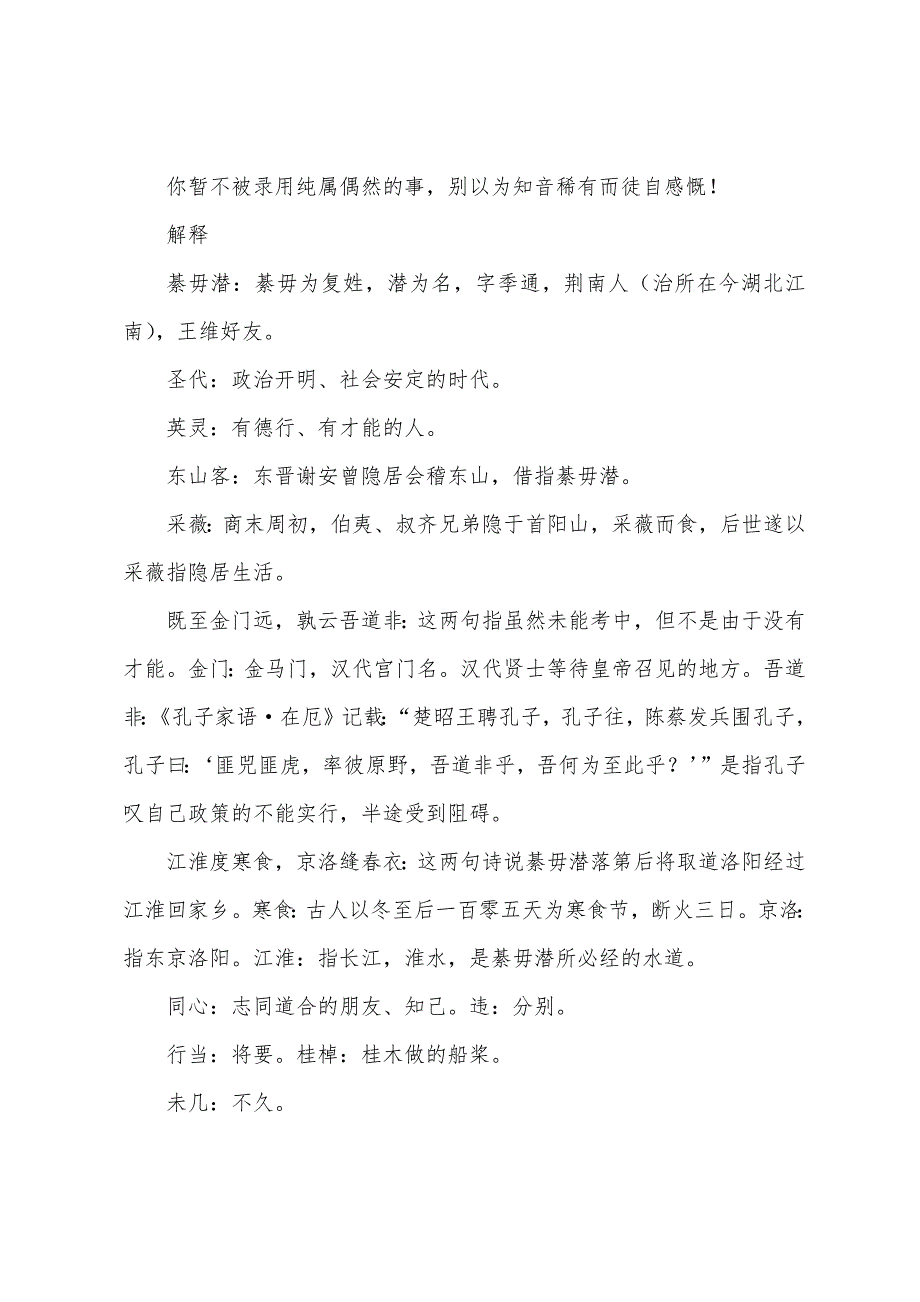 你暂不被录用纯属偶然的事，别以为知音稀有而徒自感慨！
解释
綦毋潜：綦毋为复姓，潜为名，字季通，荆南人（治所在今湖北江
南），王维好友。
圣代：政治开明、社会安定的时代。
英灵：有德行、有才能的人。
东山客：东晋谢安曾隐居会稽东山，借指綦毋潜。
采薇：商末周初，伯夷、叔齐兄弟隐于首阳山，采薇而食，后世遂以
采薇指隐居生活。
既至金门远，孰云吾道非：这两句指虽然未能考中，但不是由于没有
才能。金门：金马门，汉代宫门名。汉代贤士等待皇帝召见的地方。吾道
非：《孔子家语·在厄》记载：“楚昭王聘孔子，孔子往，陈蔡发兵围孔子，
孔子曰：‘匪兕匪虎，率彼原野，吾道非乎，吾何为至此乎？’”是指孔子
叹自己政策的不能实行，半途受到阻碍。
江淮度寒食，京洛缝春衣：这两句诗说綦毋潜落第后将取道洛阳经过
江淮回家乡。寒食：古人以冬至后一百零五天为寒食节，断火三日。京洛：
指东京洛阳。江淮：指长江，淮水，是綦毋潜所必经的水道。
同心：志同道合的朋友、知己。违：分别。
行当：将要。桂棹：桂木做的船桨。
未几：不久。